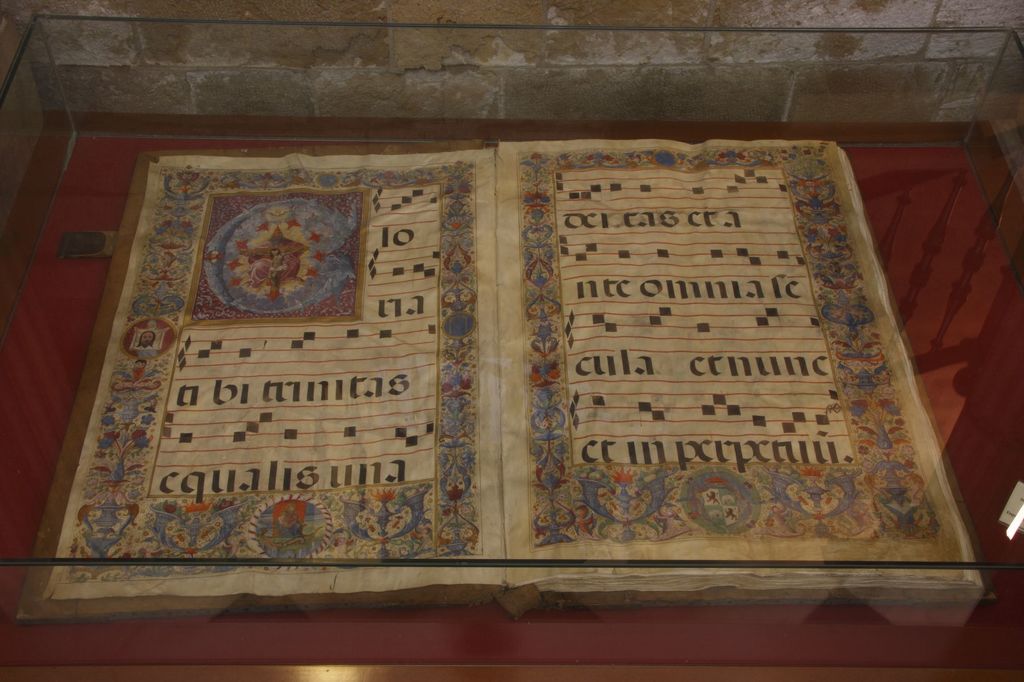 Glo
ria
ti bi trinitas
equalis una
deitas et a
nte omnia se
cula et nunc
et in perpetuū.